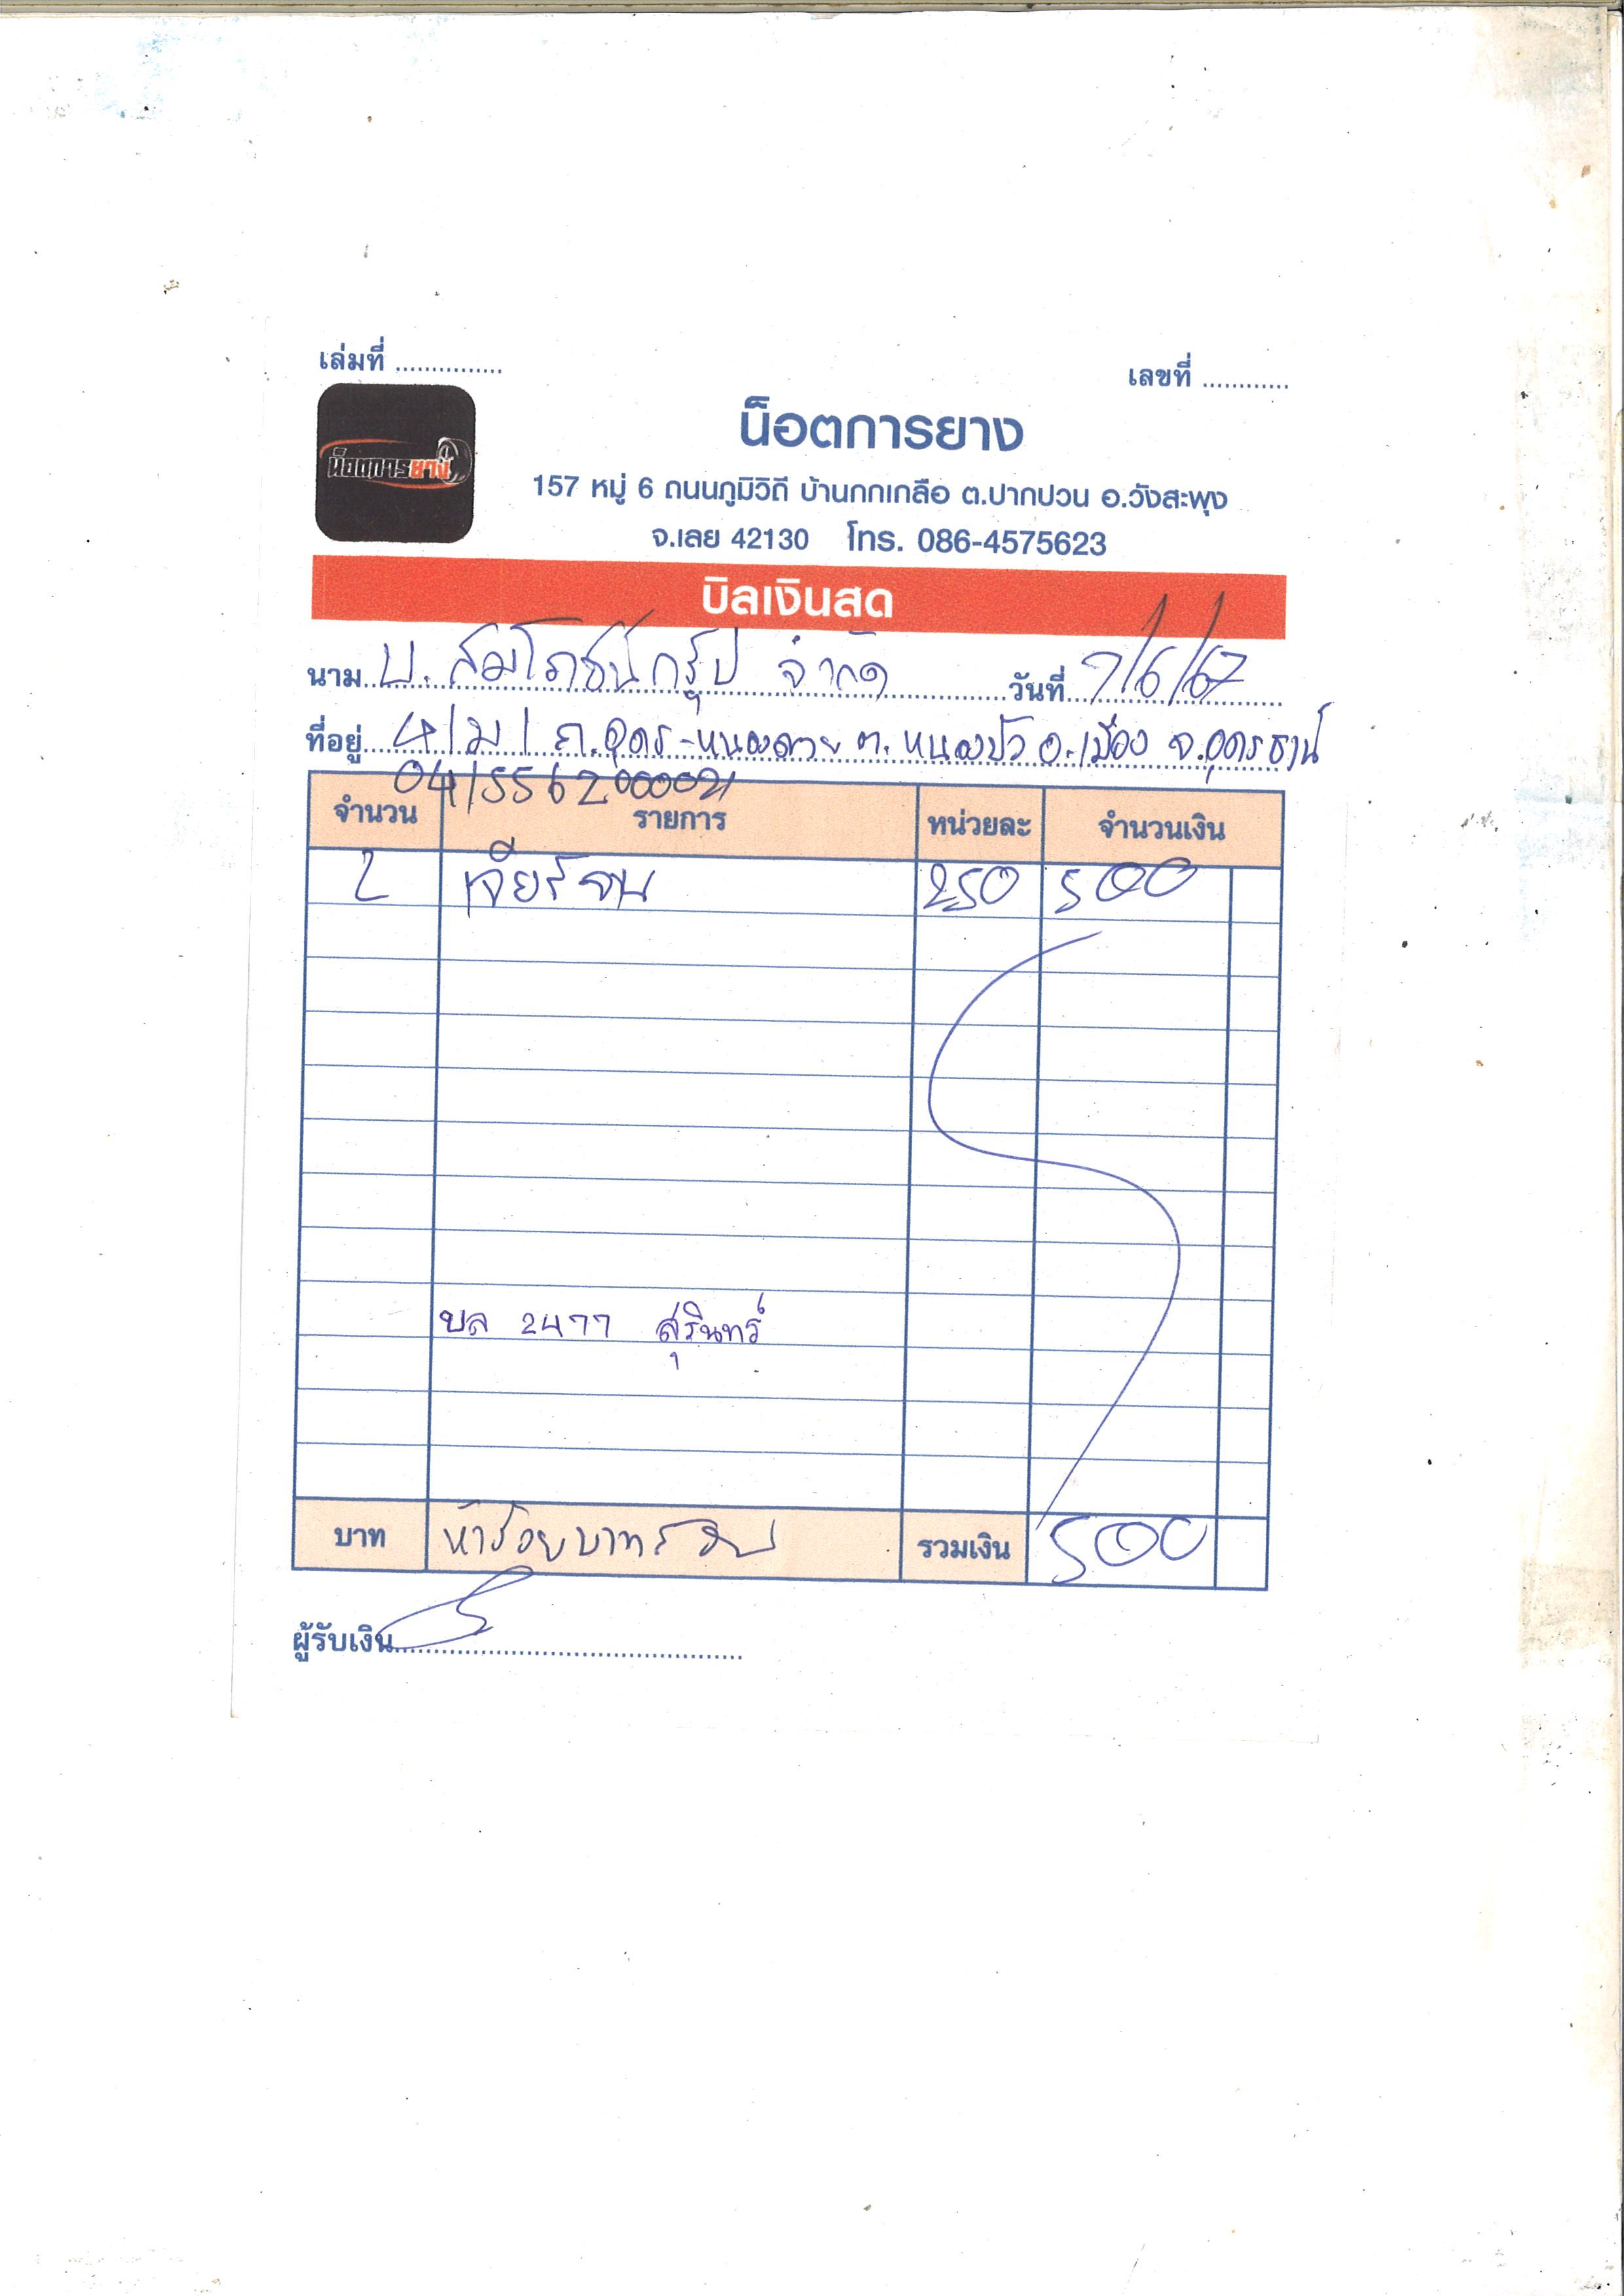 เล่มที่ ...............
เลขที่ ............
น็อตการยาง
น็อตการยาง
157 หมู่ 6 ถนนภูมิวิถี บ้านกกเกลือ ต.ปากปวน อ.วังสะพุง
จ.เลย 42130 โทร. 086-4575623
บิลเงินสด
นาม บ. สัมโภชน์กรุ๊ป จำกัด วันที่ 7/6/67
ที่อยู่ 4/ม1 ถ.อุดร-หนองควาย ต.หนองบัว อ.เมือง จ.อุดรธานี
0415562000021
จำนวน รายการ หน่วยละ จำนวนเงิน
2 เจียร์จาน 250 500
บล 2477 สุรินทร์
บาท ห้าร้อยบาท รวมเงิน 500
ผู้รับเงิน